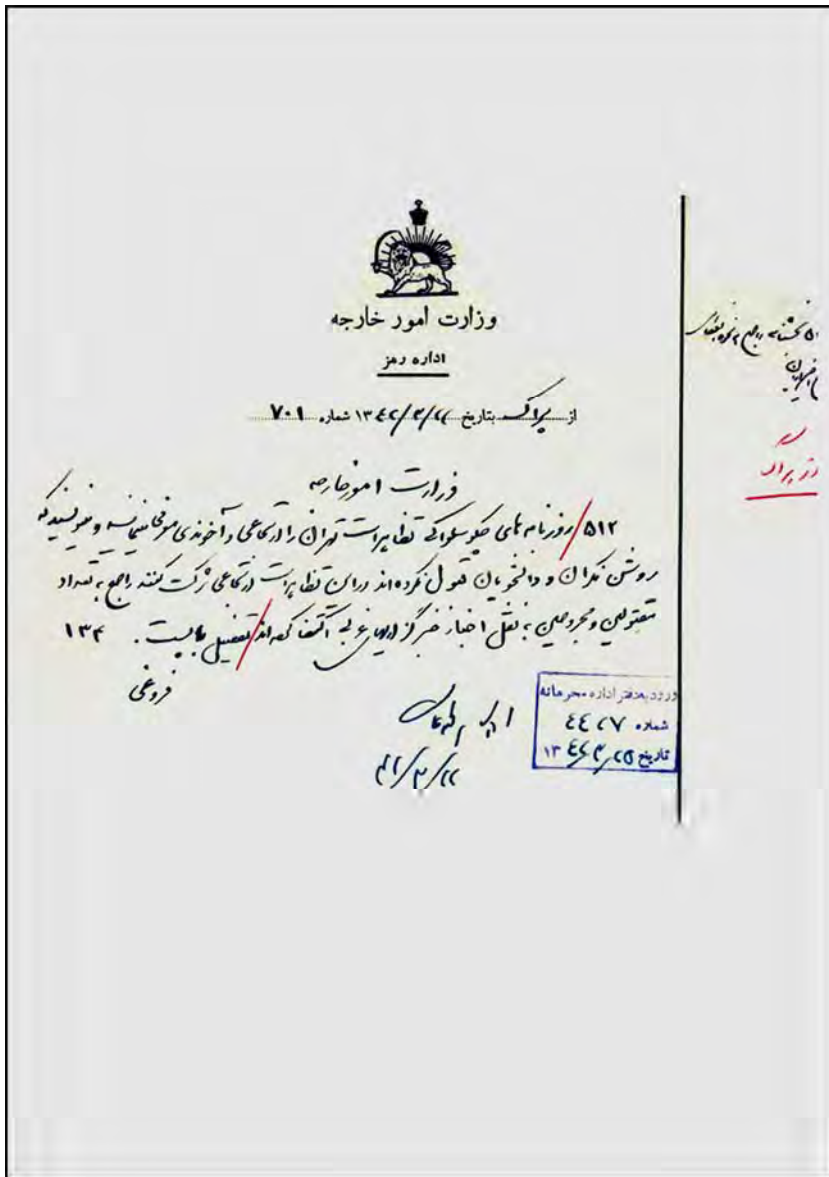 وزارت امور خارجه
اداره رمز
از پراگ بتاریخ ۱۳۴۲/۳/۲۲ شماره ۷۰۱
وزارت امور خارجه
۵۱۲/ روزنامه های چکوسلواکی تظاهرات تهران را ارتجاعی و آخوندی معرفی مینمایند و مینویسند که
روشن فکران و دانشجویان قبول نکرده اند در این تظاهرات ارتجاعی شرکت کنند راجع به تعداد
مقتولین و مجروحین به نقل اخبار خبرگزاریهای غربی اکتفا کرده اند/ تفصیل با پست. ۱۳۴
فروغی
۴۲/۳/۲۲
ورود بدفتر اداره محرمانه
شماره ۴۴۲۷
تاریخ ۱۳۴۲/۳/۲۵
از پراگ